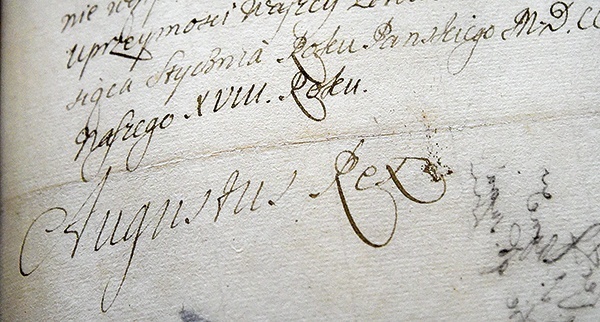 nie
uprzeymosci Waszey
siąca Stycznia Roku Panskiego M.D.CC
Naszego XVIII. Roku.
Augustus Rex